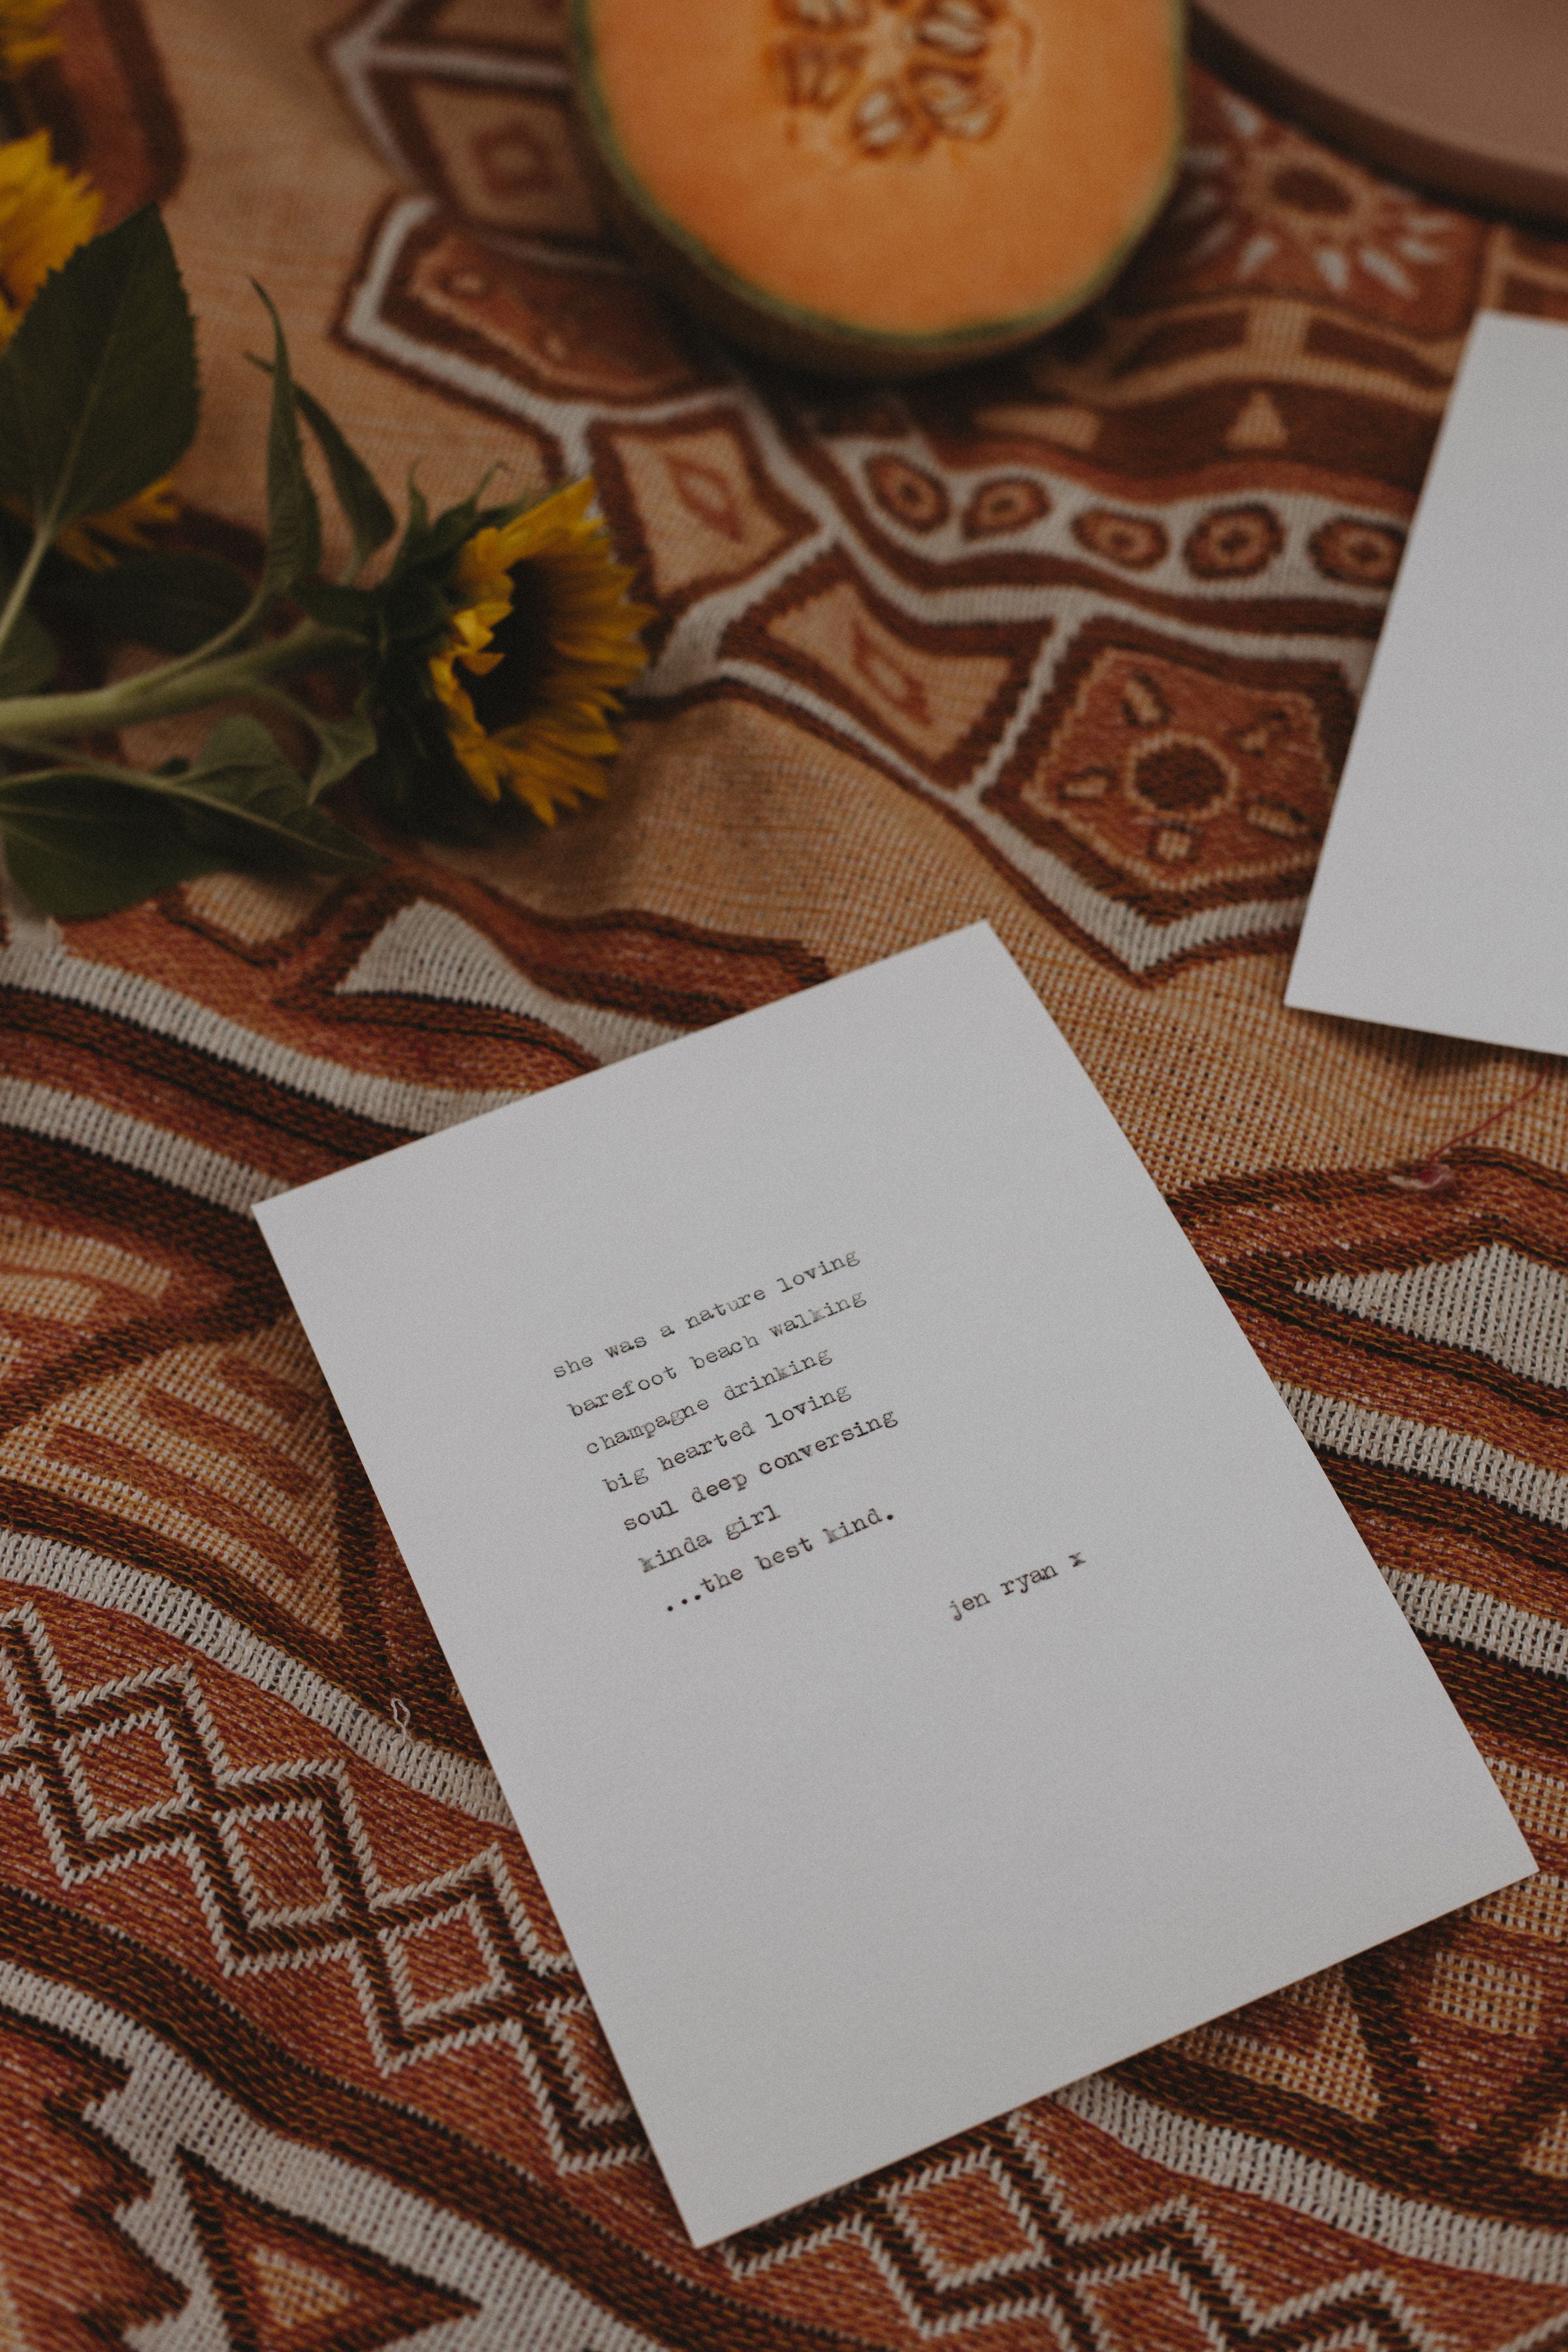 she was a nature loving
barefoot beach walking
champagne drinking
big hearted loving
soul deep conversing
kinda girl
...the best kind.
jen ryan x